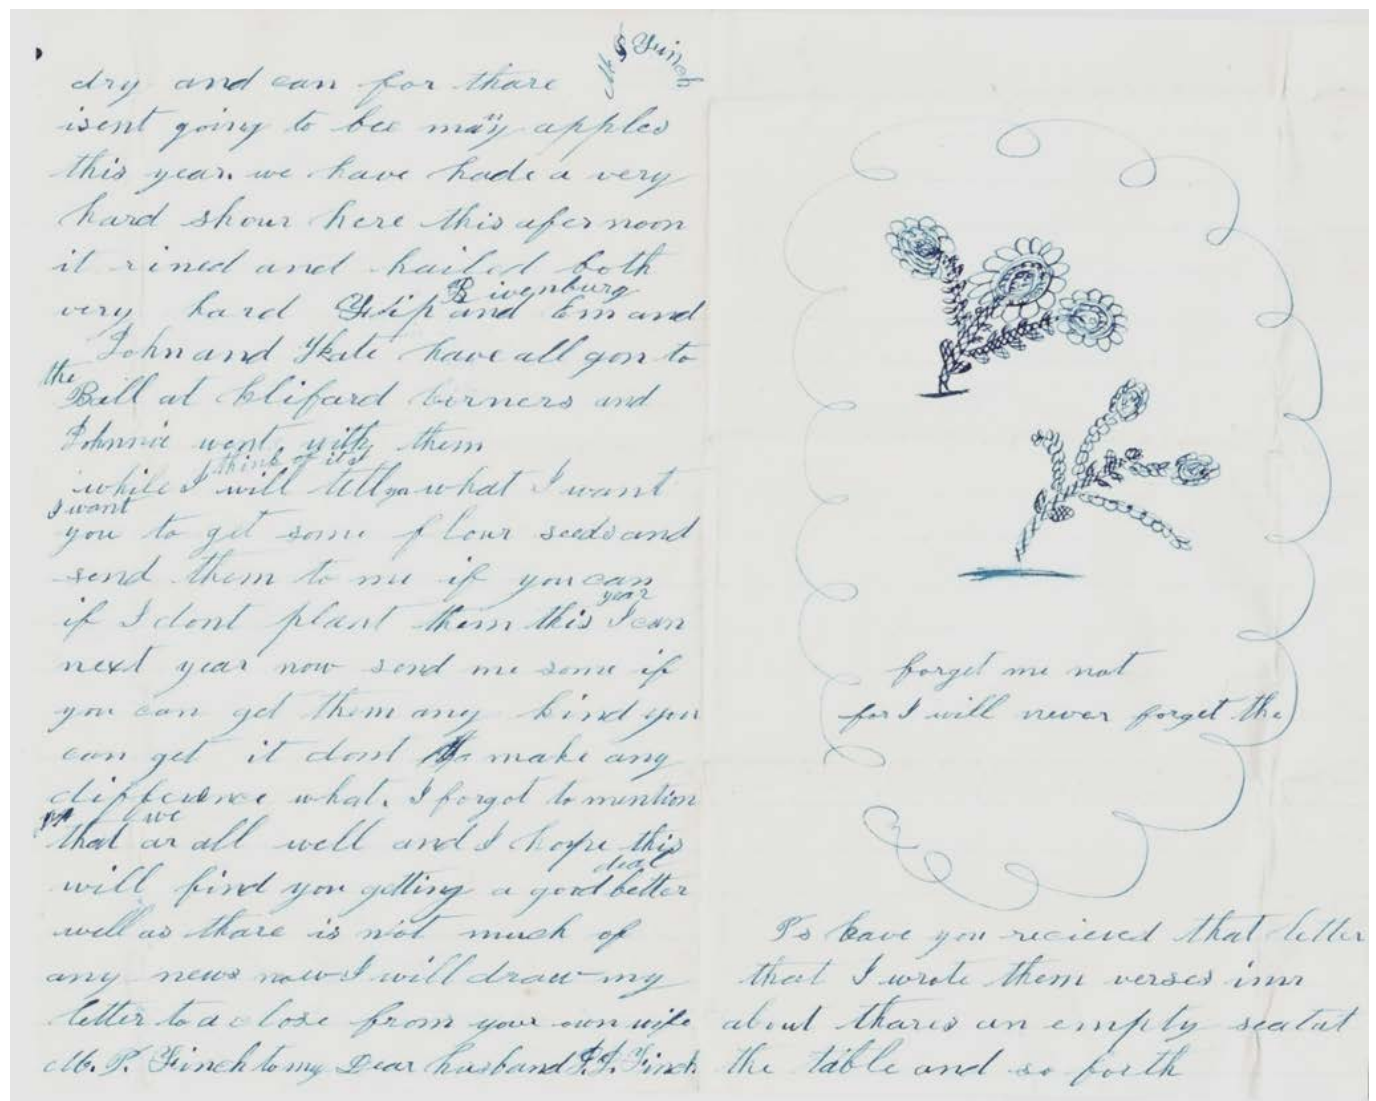 M S Finch
dry and can for thare
isent going to bee may apples
this year. we have hade a very
hard shour here this afernoon
it rined and hailed both
very hard Flip Rivenburg and Em and
John and Kate have all gon to
the Ball at Clifard Corners and
Johnnie went with them
while I think of it I will tell you what I want
I want you to get some flour seeds and
send them to me if you can
if I dont plant them this year I can
next year now send me some if
you can get them any kind you
can get it dont make any
differance what. I forgot to mention
that we ar all well and I hope this
will find you getting a good deal better
well as thare is not much of
any news now I will draw my
letter to a close from your own wife
M. S. Finch to my Dear husband Finch
forget me not
for I will never forget the
Ps have you recieved that letter
that I wrote them verses inn
about thares an empty seat at
the table and so forth